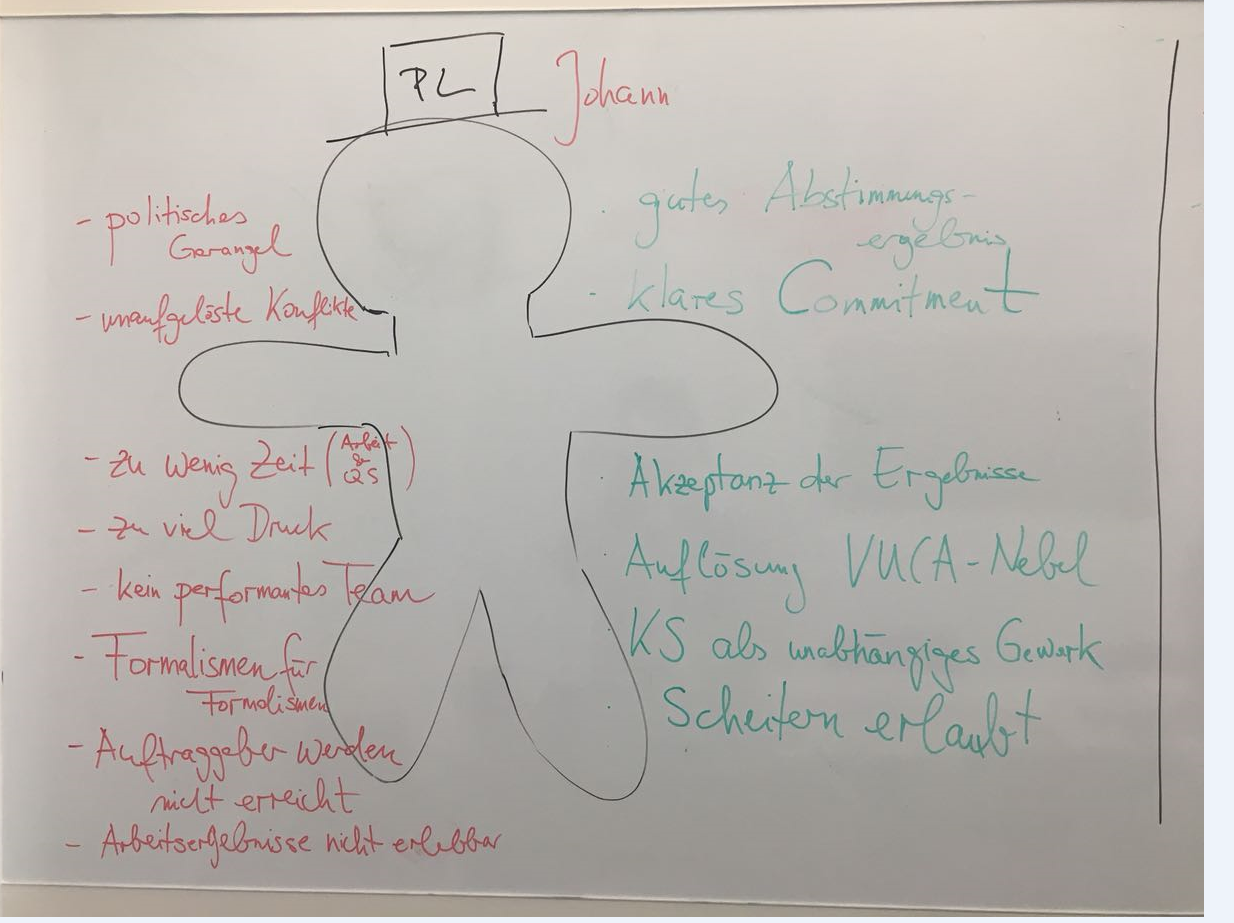 PL
Johann
- politisches
Gerangel
- unaufgelöste Konflikte
- zu wenig Zeit (Arbeit
&
QS)
- zu viel Druck
- kein performantes Team
- Formalismen für
Formalismen
- Auftraggeber werden
nicht erreicht
- Arbeitsergebnisse nicht erlebbar
· gutes Abstimmungs-
ergebnis
- klares Commitment
· Akzeptanz der Ergebnisse
· Auflösung VUCA-Nebel
· KS als unabhängiges Gewerk
· Scheitern erlaubt